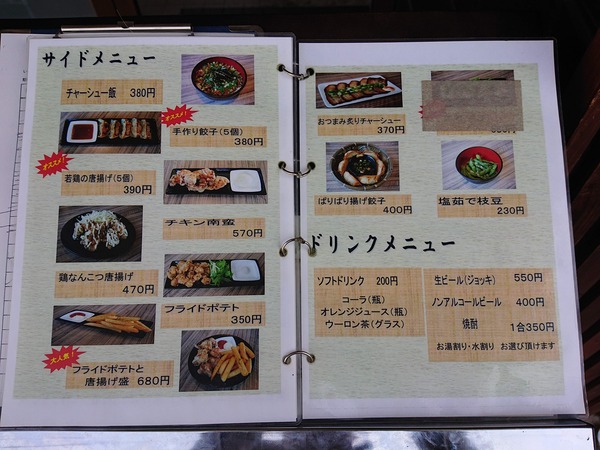 サイドメニュー
チャーシュー飯 380円
オススメ!
手作り餃子(5個)
380円
オススメ!
若鶏の唐揚げ(5個)
390円
チキン南蛮
570円
鶏なんこつ唐揚げ
470円
フライドポテト
350円
大人気!
フライドポテトと
唐揚げ盛 680円
おつまみ炙りチャーシュー
370円
ぱりぱり揚げ餃子
400円
塩茹で枝豆
230円
ドリンクメニュー
ソフトドリンク 200円
コーラ(瓶)
オレンジジュース(瓶)
ウーロン茶(グラス)
生ビール(ジョッキ) 550円
ノンアルコールビール 400円
焼酎 1合350円
お湯割り・水割り お選び頂けます